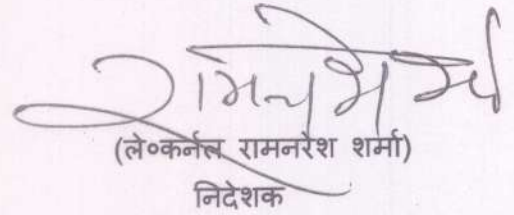 (ले०कर्नल रामनरेश शर्मा)
निदेशक